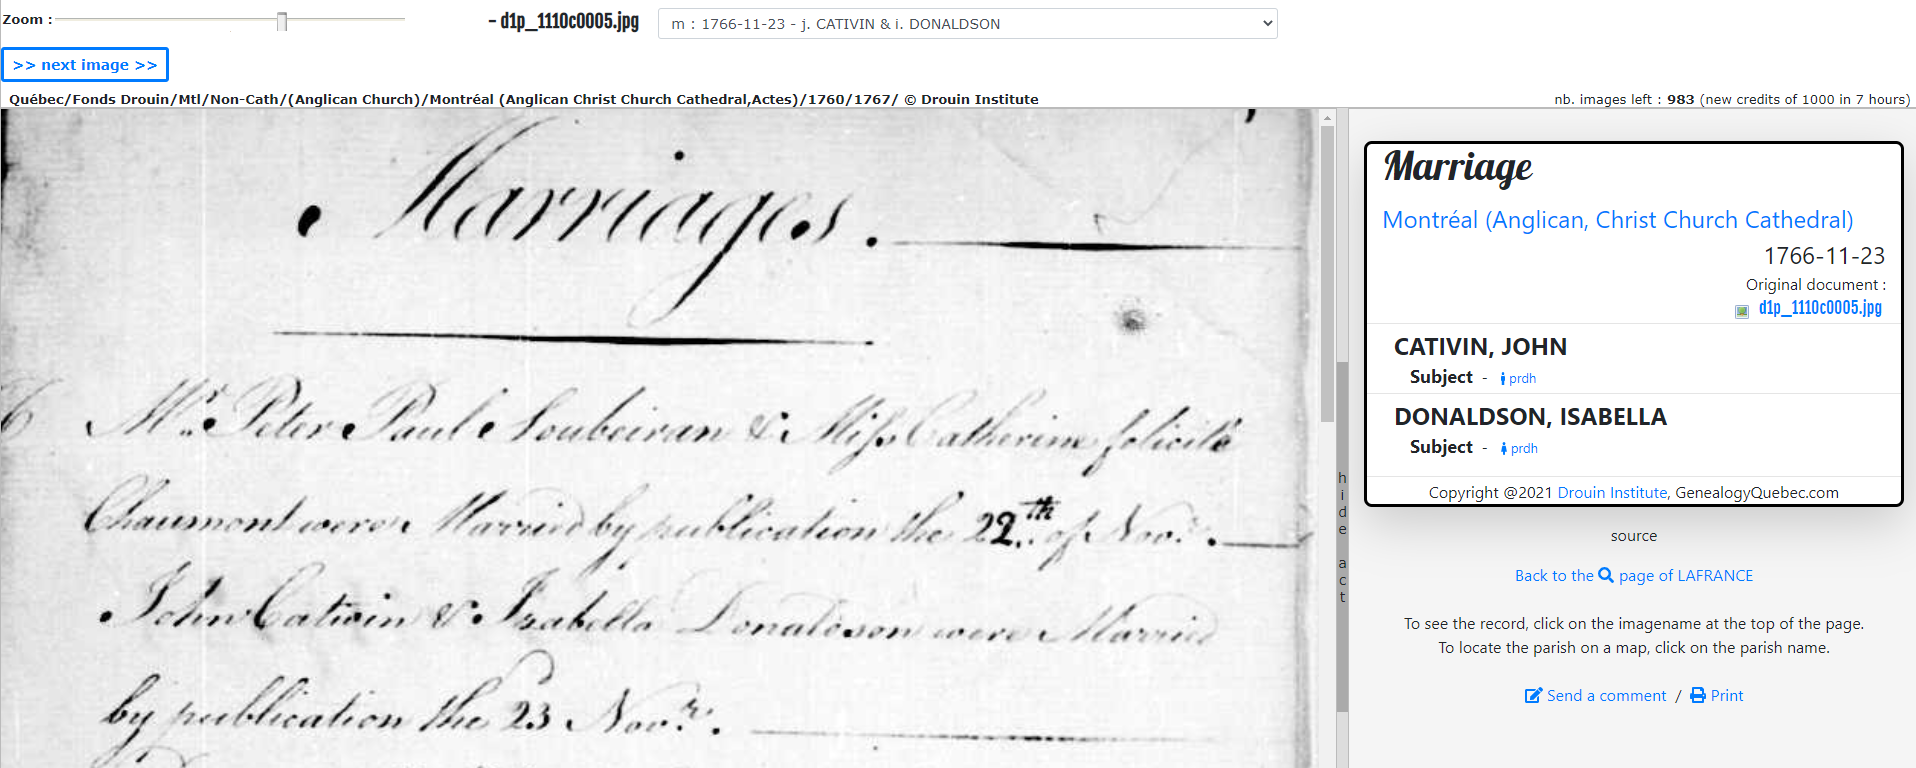 Zoom :
– d1p_1110c0005.jpg
m : 1766-11-23 - j. CATIVIN & i. DONALDSON
>> next image >>
Québec/Fonds Drouin/Mtl/Non-Cath/(Anglican Church)/Montréal (Anglican Christ Church Cathedral,Actes)/1760/1767/ © Drouin Institute
nb. images left : 983 (new credits of 1000 in 7 hours)
Marriages.
6 Mr. Peter Paul Soubeiran & Miss Catherine felicité
Chaumont were Married by publication the 22th of Novr.
John Cativin & Izabella Donaldson were Married
by publication the 23 Novr.
hide act
Marriage
Montréal (Anglican, Christ Church Cathedral)
1766-11-23
Original document :
d1p_1110c0005.jpg
CATIVIN, JOHN
Subject - prdh
DONALDSON, ISABELLA
Subject - prdh
Copyright @2021 Drouin Institute, GenealogyQuebec.com
source
Back to the page of LAFRANCE
To see the record, click on the imagename at the top of the page.
To locate the parish on a map, click on the parish name.
Send a comment / Print